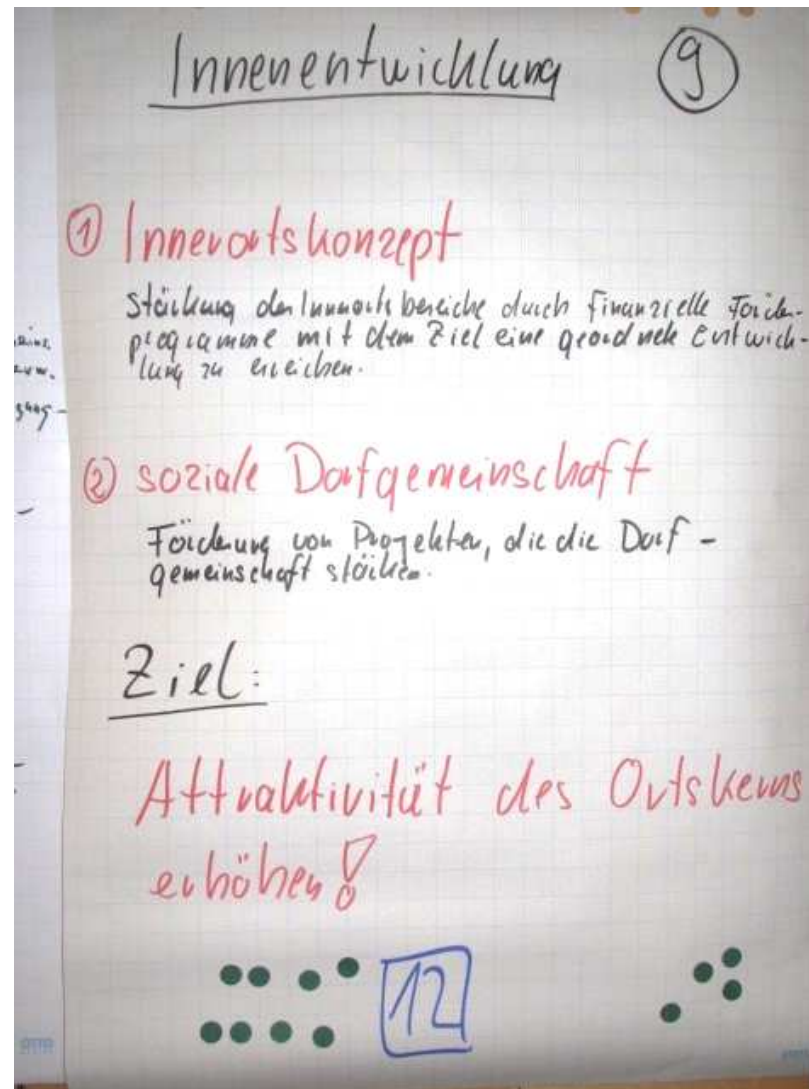 Innenentwicklung 9
1 Innerortskonzept
Stärkung der Innerortsbereiche durch finanzielle Förder-
programme mit dem Ziel eine geordnete Entwick-
lung zu erreichen.
2 soziale Dorfgemeinschaft
Förderung von Projekten, die die Dorf-
gemeinschaft stärken.
Ziel:
Attraktivität des Ortskerns
erhöhen!
12